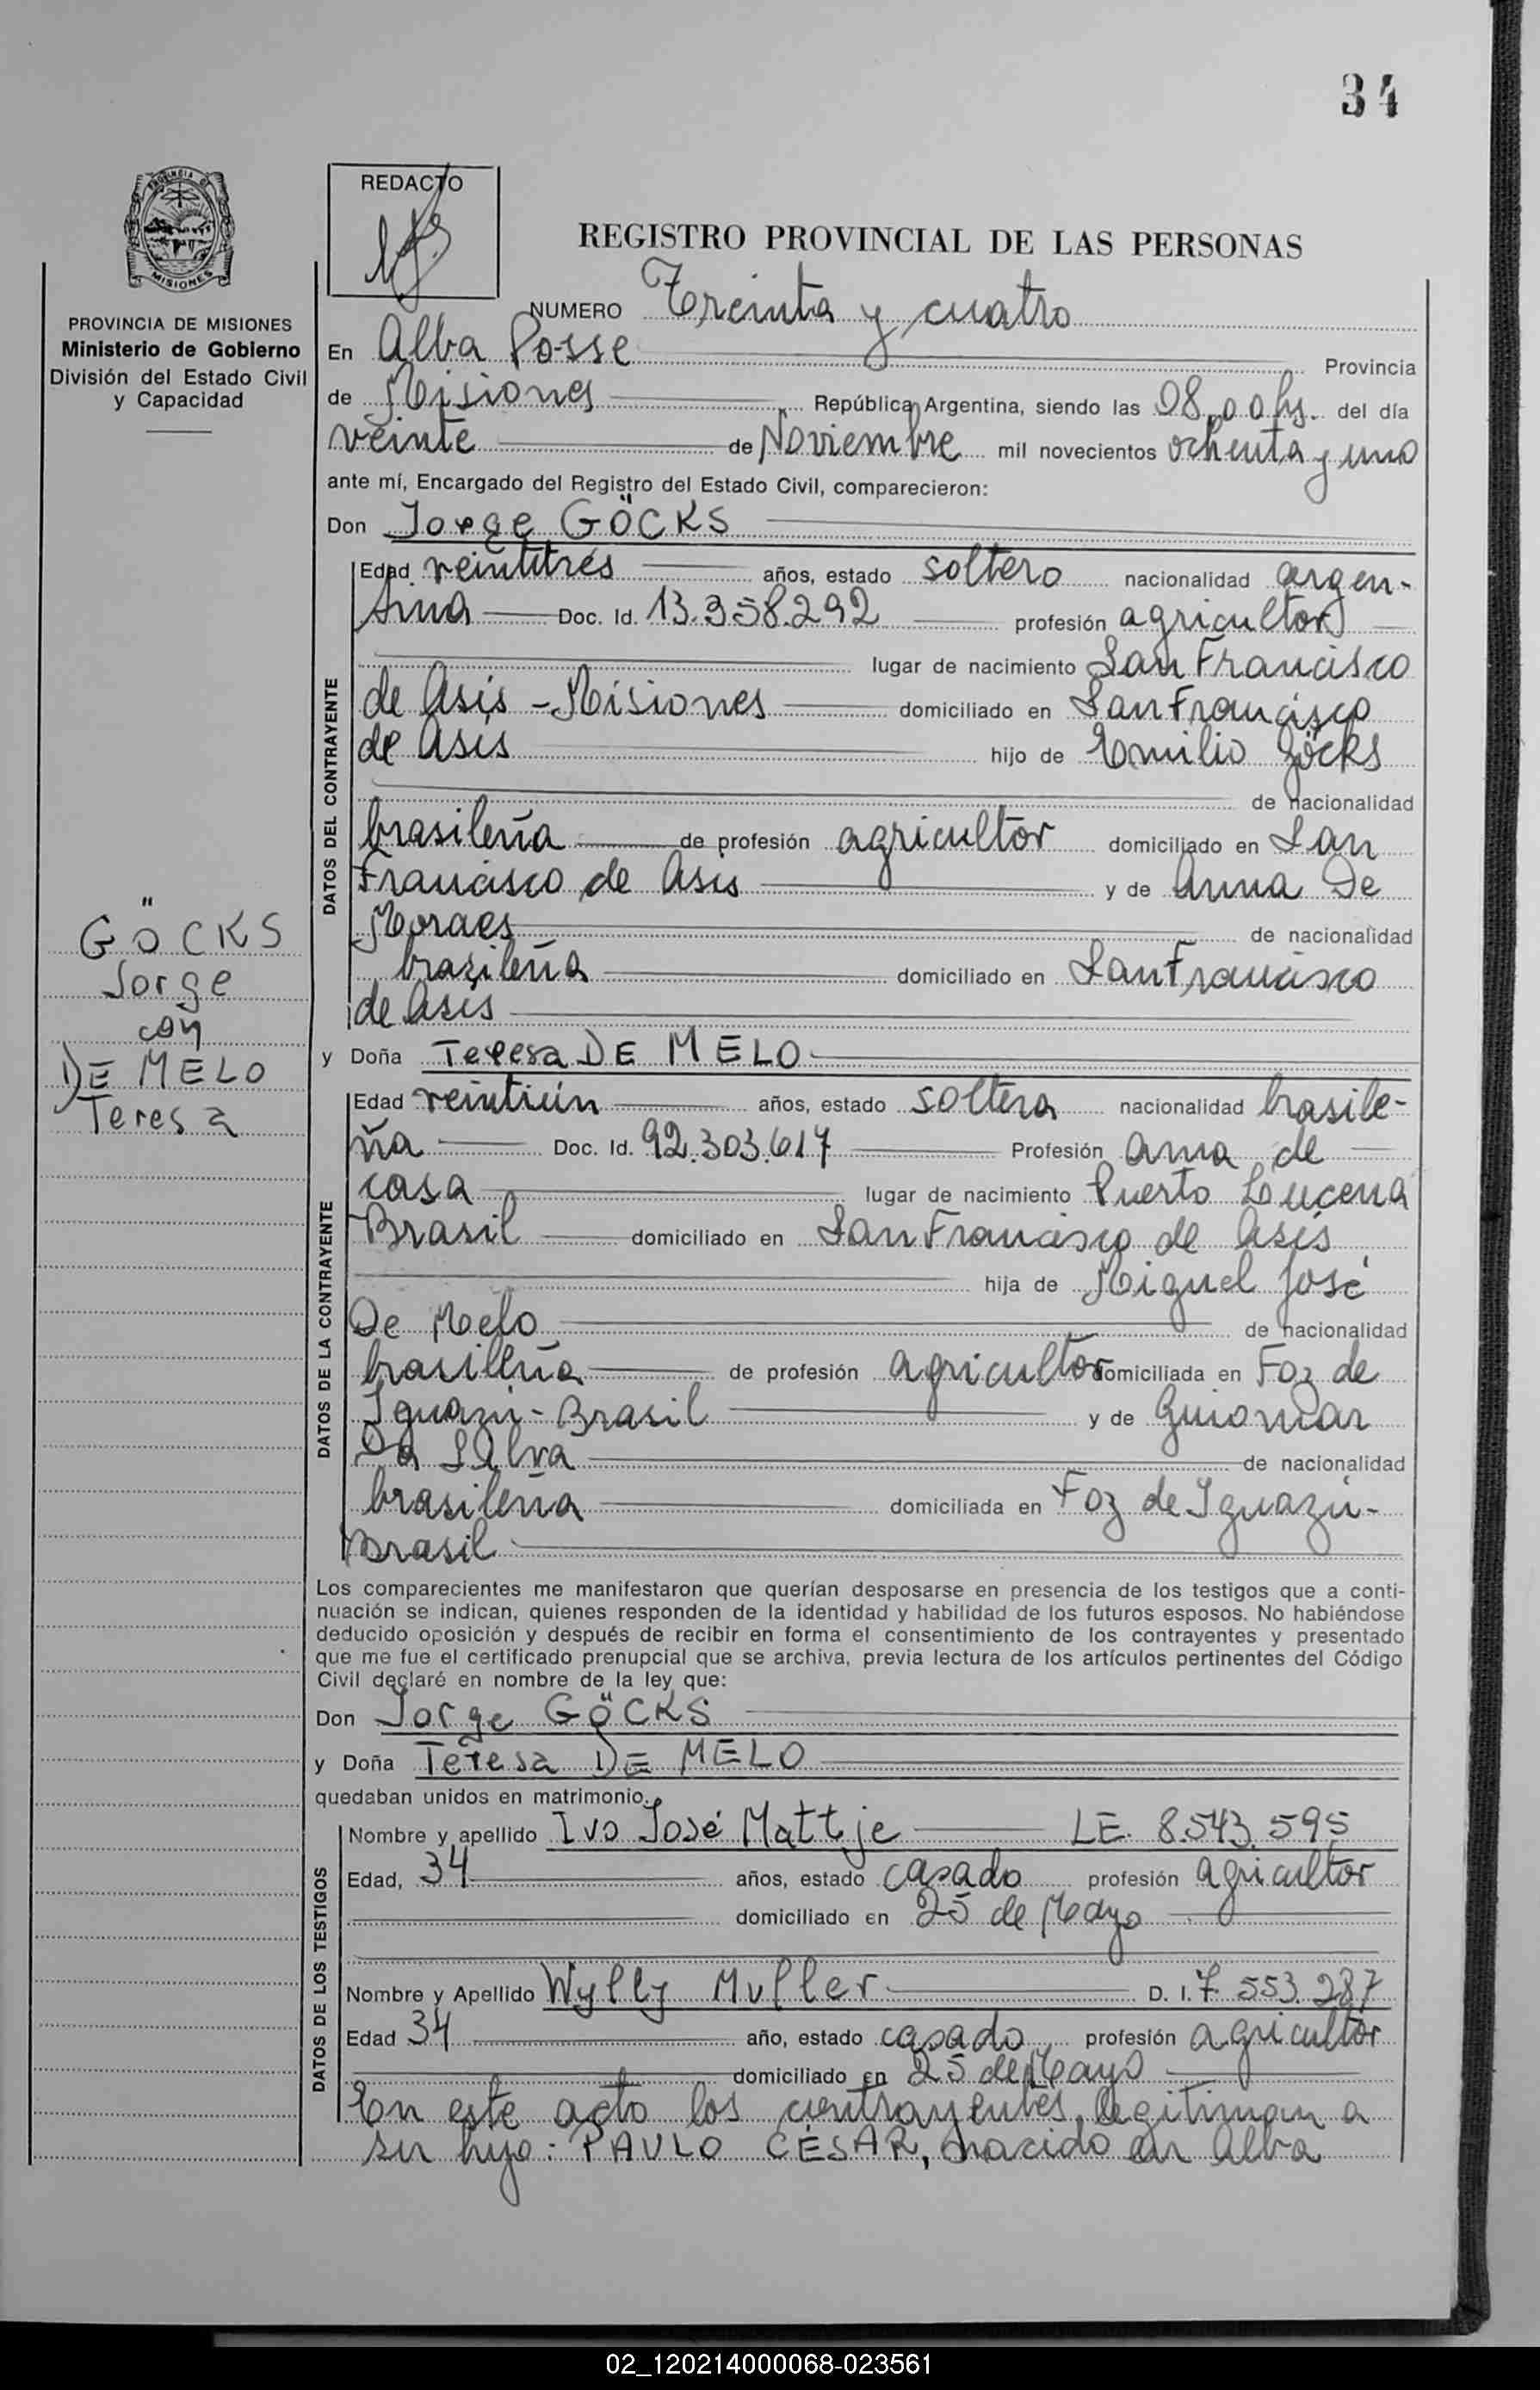 34
REDACTO
REGISTRO PROVINCIAL DE LAS PERSONAS
PROVINCIA DE MISIONES
Ministerio de Gobierno
División del Estado Civil
y Capacidad
NUMERO Treinta y cuatro
En Alba Posse Provincia
de Misiones República Argentina, siendo las 08,00 hs. del día
veinte de Noviembre mil novecientos ochenta y uno
ante mí, Encargado del Registro del Estado Civil, comparecieron:
Don Jorge GÖCKS
DATOS DEL CONTRAYENTE
Edad veintitrés años, estado soltero nacionalidad argen-
tina Doc. Id. 13.358.292 profesión agricultor
lugar de nacimiento San Francisco
de Asis - Misiones domiciliado en San Francisco
de Asis hijo de Emilio Göcks
de nacionalidad
brasileña de profesión agricultor domiciliado en San
Francisco de Asis y de Anna De
Moraes de nacionalidad
brasileña domiciliado en San Francisco
de Asis
GÖCKS
Jorge
con
DE MELO
Teresa
y Doña Teresa DE MELO
DATOS DE LA CONTRAYENTE
Edad veintiún años, estado soltera nacionalidad brasile-
ña Doc. Id. 92.303.617 Profesión ama de
casa lugar de nacimiento Puerto Lucena
Brasil domiciliado en San Francisco de Asís
hija de Miguel José
De Melo de nacionalidad
brasileña de profesión agricultor domiciliada en Foz de
Iguazú - Brasil y de Guiomar
Da Silva de nacionalidad
brasileña domiciliada en Foz de Iguazú -
Brasil
Los comparecientes me manifestaron que querían desposarse en presencia de los testigos que a conti-
nuación se indican, quienes responden de la identidad y habilidad de los futuros esposos. No habiéndose
deducido oposición y después de recibir en forma el consentimiento de los contrayentes y presentado
que me fue el certificado prenupcial que se archiva, previa lectura de los artículos pertinentes del Código
Civil declaré en nombre de la ley que:
Don Jorge GÖCKS
y Doña Teresa DE MELO
quedaban unidos en matrimonio.
DATOS DE LOS TESTIGOS
Nombre y apellido Ivo José Mattje LE. 8.543.595
Edad, 34 años, estado casado profesión agricultor
domiciliado en 25 de Mayo
Nombre y Apellido Wylly Muller D. I. 7.553.287
Edad 34 año, estado casado profesión agricultor
domiciliado en 25 de Mayo
En este acto los contrayentes, legitiman a
su hijo: PAULO CÉSAR, nacido en Alba
02_120214000068-023561